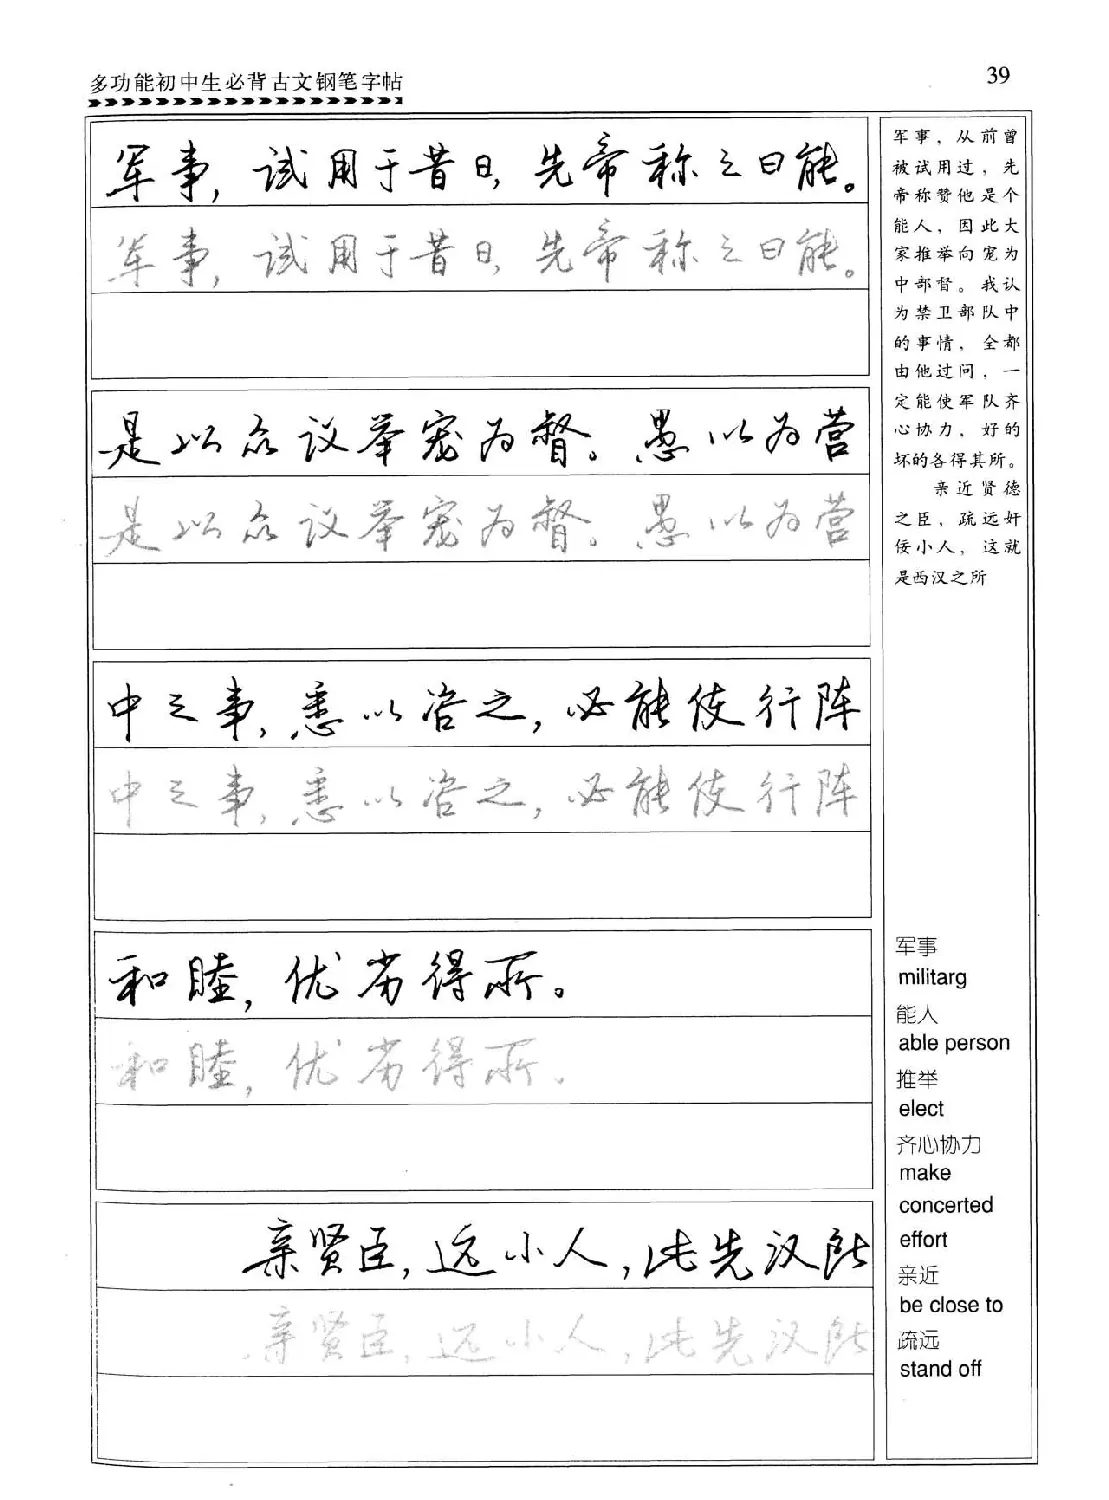 多功能初中生必背古文钢笔字帖
39
军事,试用于昔日,先帝称之曰能。
军事,试用于昔日,先帝称之曰能。
是以众议举宠为督。愚以为营
是以众议举宠为督。愚以为营
中之事,悉以咨之,必能使行阵
中之事,悉以咨之,必能使行阵
和睦,优劣得所。
和睦,优劣得所。
亲贤臣,远小人,此先汉所
亲贤臣,远小人,此先汉所
军事，从前曾
被试用过，先
帝称赞他是个
能人，因此大
家推举向宠为
中部督。我认
为禁卫部队中
的事情，全都
由他过问，一
定能使军队齐
心协力，好的
坏的各得其所。
亲近贤德
之臣，疏远奸
佞小人，这就
是西汉之所
军事
militarg
能人
able person
推举
elect
齐心协力
make
concerted
effort
亲近
be close to
疏远
stand off